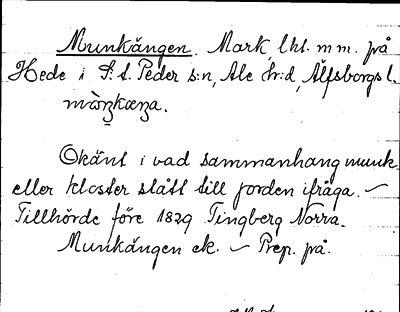 Munkängen. Mark, lht. m m. på
Hede i S:t Peder s:n, Ale hr:d, Älfsborgs l.

Okänt i vad sammanhang munk
eller kloster stått till jorden ifråga. –
Tillhörde före 1829 Tingberg Norra.
Munkängen ek. – Prep. på.